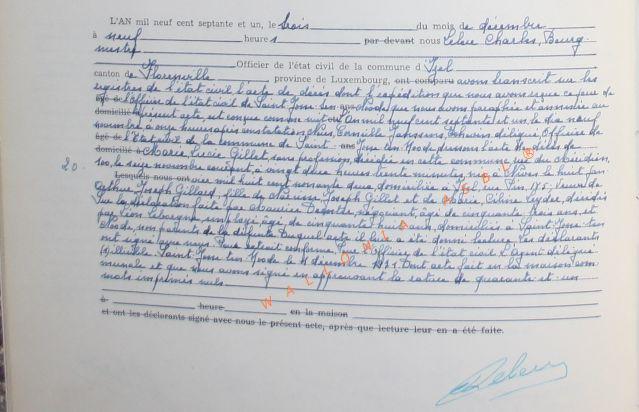 L'AN mil neuf cent septante et un, le trois du mois de décembre
à neuf heures par devant nous Lebeu Charles, Bourg-
mestre
Officier de l'état civil de la commune d'Izel
canton de Florenville province de Luxembourg, ont comparu avons transcrit sur les
registres de l'état civil l'acte de décès dont l'expédition que nous avons reçue ce jour de
l'officier de l'état civil de Saint Josse ten Noode que nous avons paraphée et annexée au
présent acte, est conçue comme suit: L'an mil neuf cent septante et un le dix neuf
novembre à onze heures après constatation Nous, Corneille Janssens, Echevin délégué, Officier de
l'Etat civil de la commune de Saint Josse ten Noode dressons l'acte de décès de
20. Marie Lucie Gillet, sans profession, décédée en cette commune rue du Méridien,
100, le seize novembre courant, à vingt deux heures trente minutes, née à le huit jan-
vier mil huit cent nonante deux domiciliée à Izel, rue 115. veuve de
Arthur Joseph Gillard, fille de Joseph Gillet et de Marie, Céline décédés
Sur la déclaration faite par Maurice négociant, âgé de cinquante trois ans et
par Léon employé, âgé de cinquante ans, domiciliés à Saint Josse ten
Noode, non parents de la défunte Duquel acte il leur a été donné lecture. Les déclarants
ont signé avec nous. Pour extrait conforme, Pour l'Officier de l'état civil L'agent délégué
(s) illisible Saint Josse ten Noode le décembre 1971 Dont acte fait en la maison com-
munale et que nous avons signé en approuvant la rature de quarante et un
mots imprimés nuls
à heure en la maison
et ont les déclarants signé avec nous le présent acte, après que lecture leur en a été faite.
WALLONIA ASBL ®
Lebeu